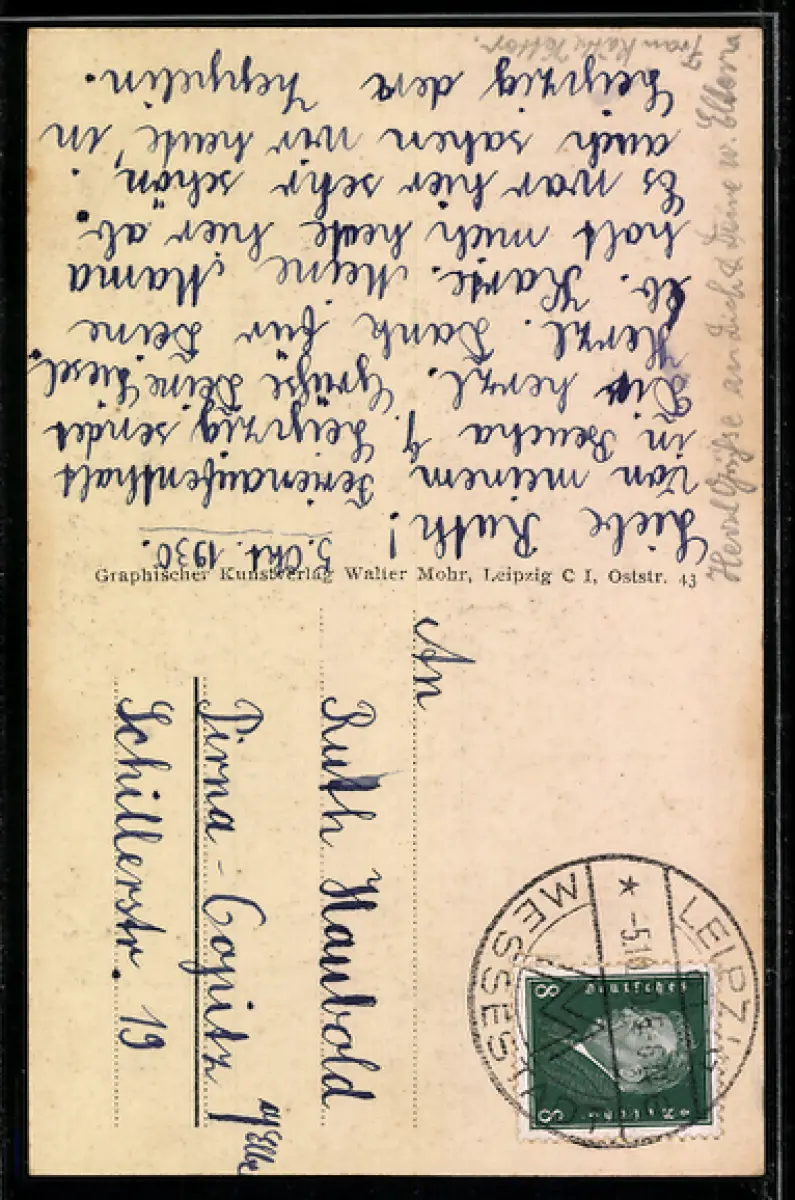 5. Okt. 1930.
Liebe Ruth!
Von meinem Ferienaufenthalt
in Beucha b. Leipzig sendet
Dir herzl. Grüße Deine Liesel.
Herzl. Dank für Deine
lb. Karte. Meine Mama
holt mich heute hier ab.
Es war hier sehr schön,
auch sahen wir heute in
Leipzig den Zeppelin.
Herzl Grüße an Dich & Deine w. Eltern
Frau Käthe
Graphischer Kunstverlag Walter Mohr, Leipzig C I, Oststr. 43
An
Ruth Haubold
Pirna-Copitz
a/Elbe
Schillerstr. 19
LEIPZIG
* -5.10.
MESSES
Deutsches
Reich
8 8